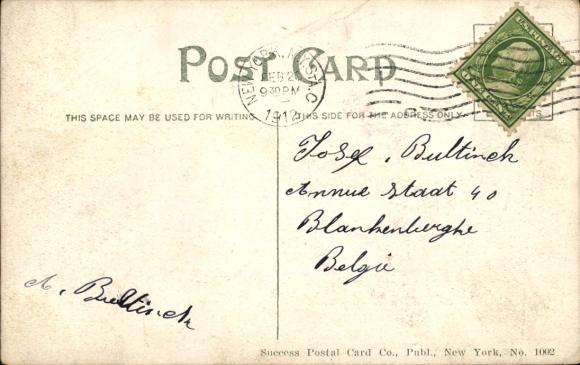 POST CARD
NEW YORK, N.Y. STA. C
FEB 2
9 30 PM
1912
U.S. POSTAGE
THIS SPACE MAY BE USED FOR WRITING
THIS SIDE FOR THE ADDRESS ONLY.
Josef, Bultinck
Annue Staat 40
Blankenberghe
Belgie
A, Bultinck
Success Postal Card Co., Publ., New York, No. 1002